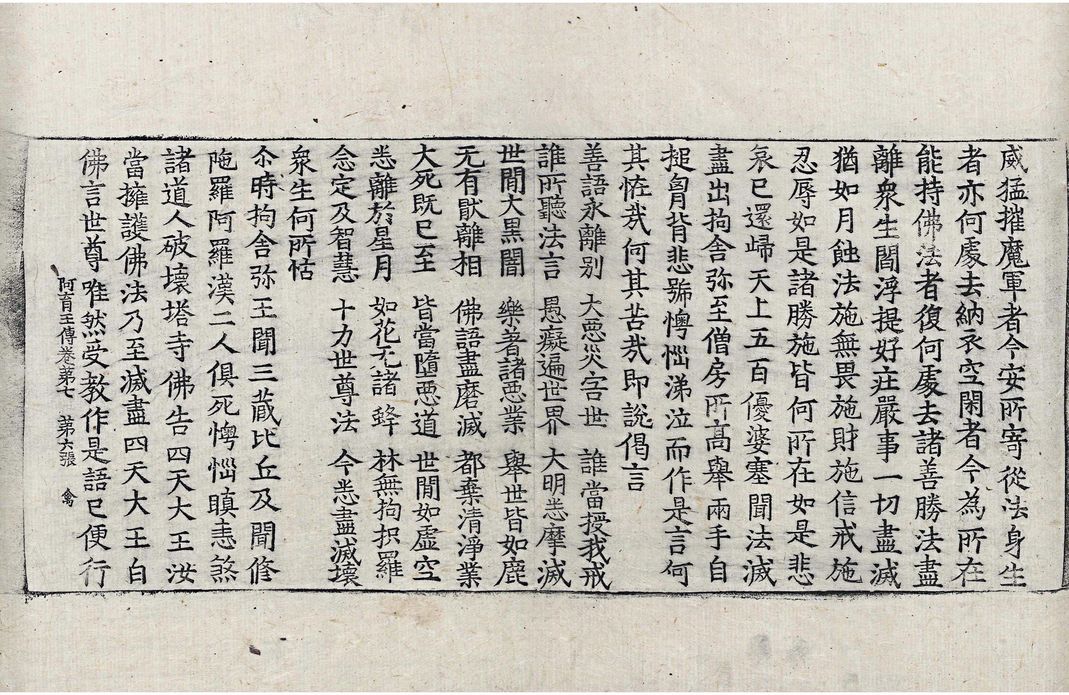 威猛摧魔軍者今安所寄從法身生
者亦何處去納衣空閑者今為所在
能持佛法者復何處去諸善勝法盡
離衆生閻浮提好庄嚴事一切盡滅
猶如月蝕法施無畏施財施信戒施
忍辱如是諸勝施皆何所在如是悲
哀已還歸天上五百優婆塞聞法滅
盡出拘舍弥至僧房所高舉兩手自
搥胷背悲號懊惱涕泣而作是言何
其恠哉何其苦哉即說偈言
善語永離别 大惡災害世 誰當授我戒
誰所聽法言 愚癡遍世界 大明悉摩滅
世閒大黒闇 樂著諸惡業 舉世皆如鹿
无有猒離相 佛語盡磨滅 都棄清淨業
大死既已至 皆當墮惡道 世閒如虛空
悉離於星月 如花无諸蜂 林無拘抧羅
念定及智慧 十力世尊法 今悉盡滅壞
衆生何所怙
尒時拘舍弥王聞三藏比丘及聞修
陁羅阿羅漢二人俱死懊惱瞋恚煞
諸道人破壞塔寺佛告四天大王汝
當擁護佛法乃至滅盡四天大王白
佛言世尊唯然受教作是語已便行
阿育王傳卷第七 第六張 禽